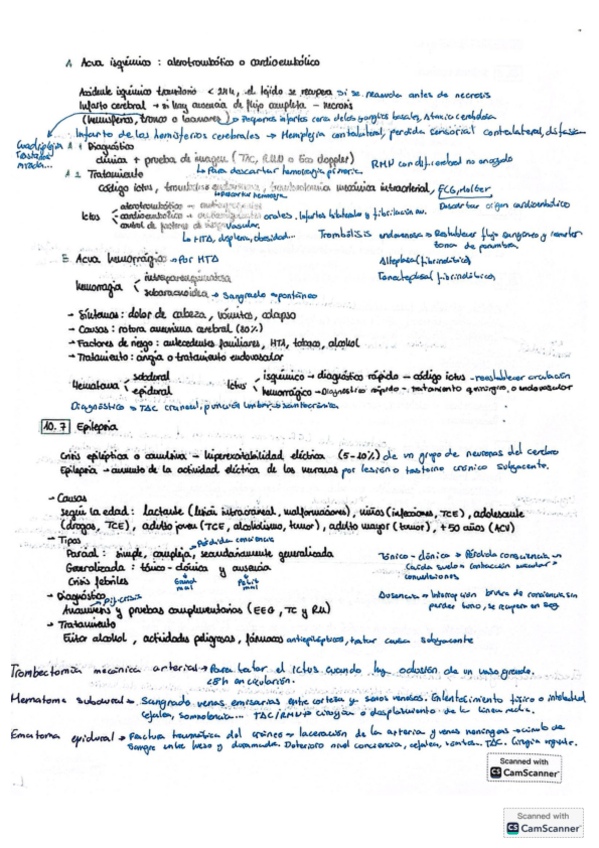 A Acva isquémico: aterotrombótico o cardioembólico
Accidente isquémico transitorio < 24h, el tejido se recupera si se reanuda antes de necrosis
Infarto cerebral → si hay ausencia de flujo completa – necrosis
(hemisferios, tronco o lacunares) → Pequeños infartos cerca de los ganglios basales, Ataxia
Infarto de los hemisferios cerebrales → Hemiplejia contralateral, perdida sensorial contralateral,
Cuadriplejia
A 1 Diagnóstico
clínica + prueba de imagen (TAC, RMN o Eco doppler)
↳ Para descartar hemorragia primaria
RMN con dif. cerebral no
A 2 Tratamiento
código ictus, mecánica intraarterial, ECG, Holter
Descartar origen cardioembólico
Ictus
aterotrombótico
cardioembólico → orales. Infartos bilaterales y fibrilación au.
control de factores de riesgo vascular.
↳ HTA, deplena, obesidad...
Trombólisis endovenosa → Restablecer flujo sanguíneo y
zona de penumbra
Alteplasa (fibrinolítico)
Tenecteplasa (fibrinolítico)
B Acva hemorrágico → Por HTA
hemorragia
intraparenquimatosa
subaracnoidea → Sangrado espontáneo
– Síntomas: dolor de cabeza, vómitos, colapso
– Causas: rotura aneurisma cerebral (80%)
– Factores de riesgo: antecedentes familiares, HTA, tabaco, alcohol
– Tratamiento: cirugía o tratamiento endovascular
Hematoma
subdural
epidural
Ictus
isquémico → diagnóstico rápido – código ictus – reestablecer circulación
hemorrágico → Diagnóstico rápido – tratamiento quirúrgico o endovascular
Diagnóstico → TAC craneal, punción lumbar,
10.7 Epilepsia
Crisis epiléptica o comicial – hiperexcitabilidad eléctrica (5-10%) de un grupo de neuronas del cerebro
Epilepsia – aumento de la actividad eléctrica de las neuronas por lesión o trastorno crónico subyacente.
– Causas
según la edad: lactante (lesión intracraneal, malformaciones), niños (infecciones, TCE), adolescente
(drogas, TCE), adulto joven (TCE, alcoholismo, tumor), adulto mayor (tumor), +50 años (ACV)
– Tipos
→ Pérdida consciencia
Parcial: simple, compleja, secundariamente generalizada
Generalizada: tónico-clónica y ausencia
Grand mal
Petit mal
Crisis febriles
Tónico-clónica → Pérdida consciencia
Caída suelo + contracción muscular →
convulsiones
Ausencia → Interrupción brusca de consciencia sin
perder tono, se recupera en seg
– Diagnóstico
Anamnesis y pruebas complementarias (EEG, TC y RM)
– Tratamiento
Evitar alcohol, actividades peligrosas, fármacos antiepilépticos, tratar causa subyacente
Trombectomía mecánica arterial → Para tratar el ictus cuando hay oclusión de un vaso grande.
<8h en
Hematoma subdural → Sangrado venas emisarias entre corteza y senos venosos. Enlentecimiento físico o intelectual
cefalea, somnolencia... TAC/RMN → cirugía o desplazamiento de la línea media.
Ematoma epidural → Fractura traumática del cráneo → laceración de la arteria y venas meníngeas →
sangre entre hueso y duramadre. Deterioro nivel conciencia, cefalea, vómitos. TAC. Cirugía urgente.
Scanned with
CS CamScanner
Scanned with
CS CamScanner